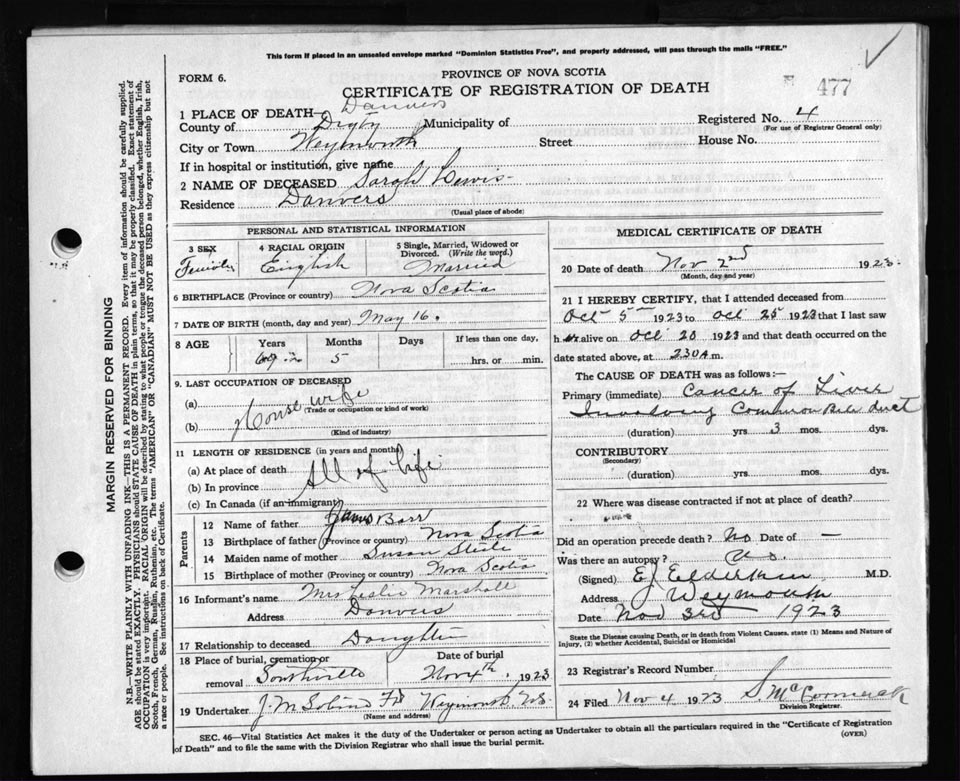 This form if placed in an unsealed envelope marked "Dominion Statistics Free", and properly addressed, will pass through the mails "FREE."
FORM 6.
PROVINCE OF NOVA SCOTIA
CERTIFICATE OF REGISTRATION OF DEATH
477
1 PLACE OF DEATH— Danvers
County of Digby Municipality of Registered No. 4
(For use of Registrar General only)
City or Town Weymouth Street House No.
If in hospital or institution, give name
2 NAME OF DECEASED Sarah Lewis
Residence Danvers
(Usual place of abode)
PERSONAL AND STATISTICAL INFORMATION
3 SEX 4 RACIAL ORIGIN 5 Single, Married, Widowed or Divorced. (Write the word.)
English Married
6 BIRTHPLACE (Province or country) Nova Scotia
7 DATE OF BIRTH (month, day and year) May 16.
8 AGE Years Months Days If less than one day,
5 hrs. or min.
9. LAST OCCUPATION OF DECEASED
(a) House wife
(Trade or occupation or kind of work)
(b)
(Kind of industry)
11 LENGTH OF RESIDENCE (in years and months)
(a) At place of death All of life
(b) In province
(c) In Canada (if an immigrant)
Parents
12 Name of father James Barr
13 Birthplace of father (Province or country) Nova Scotia
14 Maiden name of mother Susan Steele
15 Birthplace of mother (Province or country) Nova Scotia
16 Informant's name Mrs Leslie Marshall
Address Danvers
17 Relationship to deceased Daughter
18 Place of burial, cremation or removal Southville Date of burial Nov 4th, 1923
19 Undertaker J. M. Weymouth N.S.
(Name and address)
MEDICAL CERTIFICATE OF DEATH
20 Date of death Nov 2nd 1923
(Month, day and year)
21 I HEREBY CERTIFY, that I attended deceased from
Oct 5th 1923 to Oct 25 1923 that I last saw
h er alive on Oct 20 1923 and that death occurred on the
date stated above, at 230 A m.
The CAUSE OF DEATH was as follows:—
Primary (immediate) Cancer of Liver
Involving Common Bile duct
(duration) yrs 3 mos. dys.
CONTRIBUTORY
(Secondary)
(duration) yrs. mos. dys.
22 Where was disease contracted if not at place of death?
Did an operation precede death? No Date of —
Was there an autopsy? No.
(Signed) E J Elderkin M.D.
Address Weymouth
Date Nov 3rd 1923
State the Disease causing Death, or in death from Violent Causes, state (1) Means and Nature of Injury, (2) whether Accidental, Suicidal or Homicidal
23 Registrar's Record Number
24 Filed Nov 4 1923 S. McCormack
Division Registrar.
SEC. 46—Vital Statistics Act makes it the duty of the Undertaker or person acting as Undertaker to obtain all the particulars required in the "Certificate of Registration
of Death" and to file the same with the Division Registrar who shall issue the burial permit.
(OVER)
MARGIN RESERVED FOR BINDING
N.B.—WRITE PLAINLY WITH UNFADING INK—THIS IS A PERMANENT RECORD. Every item of information should be carefully supplied.
AGE should be stated EXACTLY. PHYSICIANS should STATE CAUSE OF DEATH in plain terms, so that it may be properly classified. Exact statement of
OCCUPATION is very important. RACIAL ORIGIN will be described by stating to what people or tongue the deceased person belonged, whether English, Irish,
Scotch, French, German, Russian, Ruthenian, etc. The terms "AMERICAN" OR "CANADIAN" MUST NOT BE USED as they express citizenship but not
a race or people. See instructions on back of Certificate.